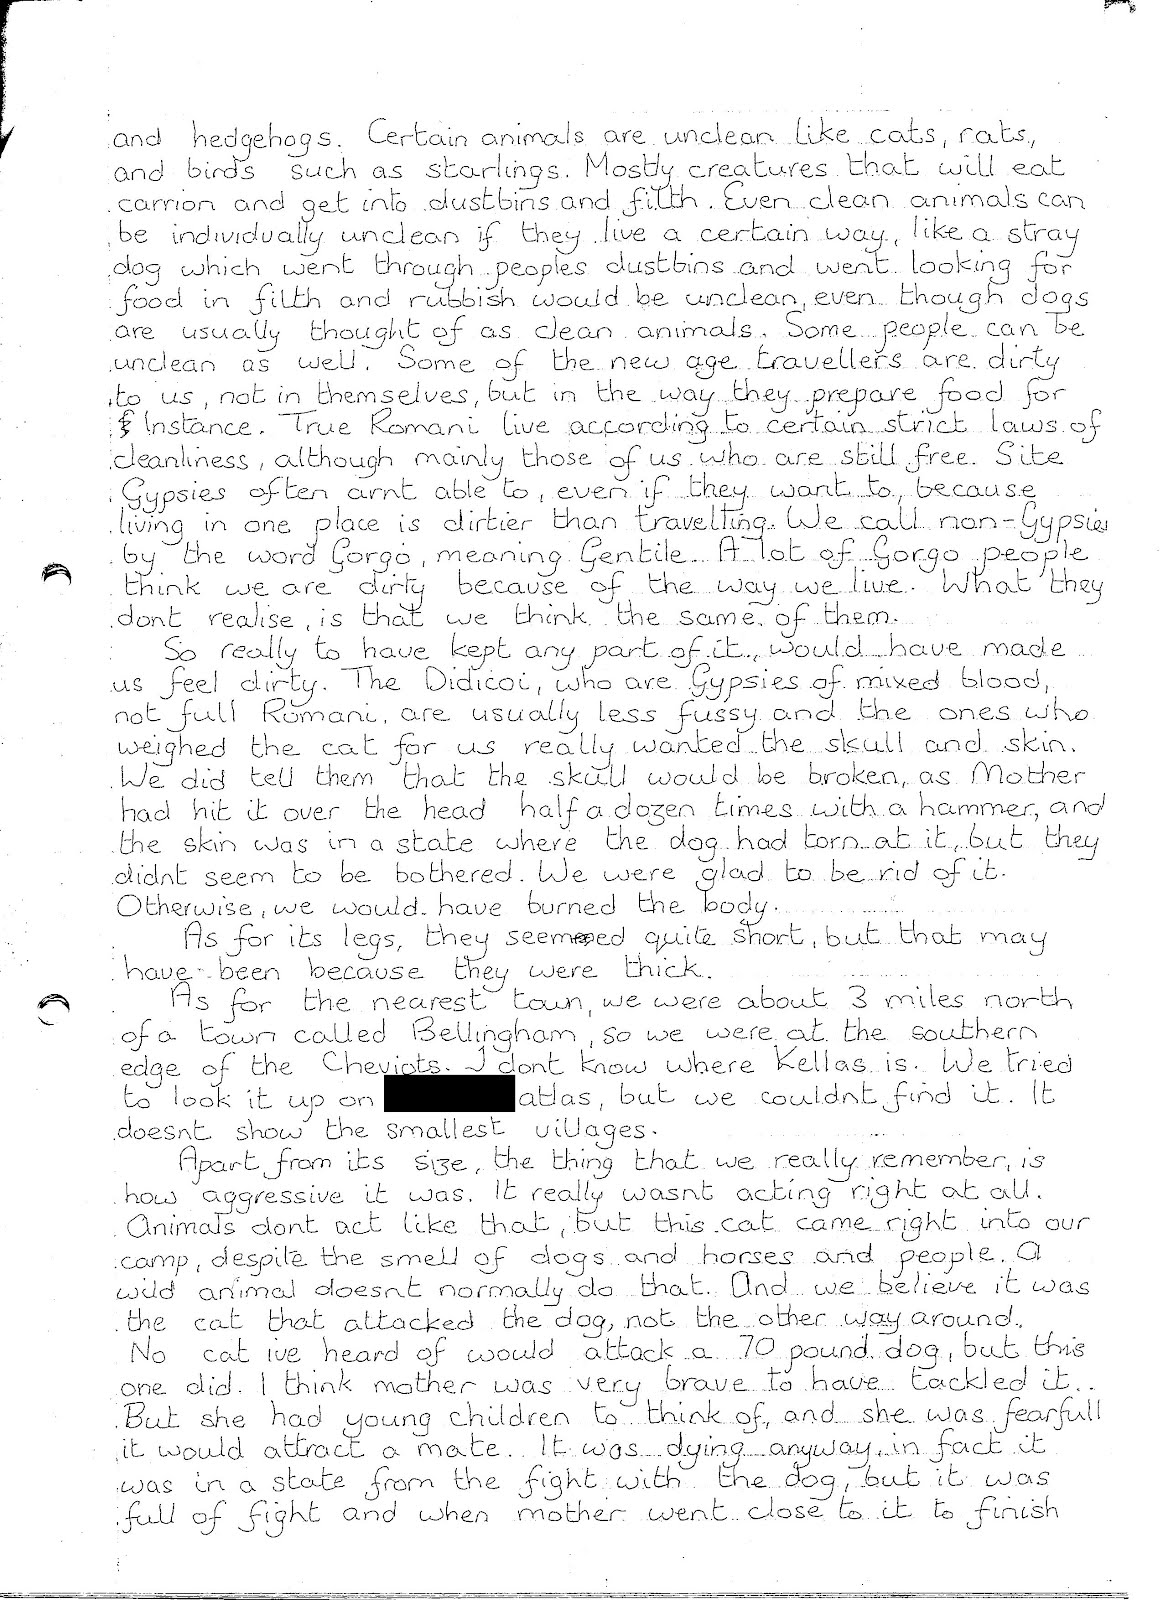 and hedgehogs. Certain animals are unclean like cats, rats,
and birds such as starlings. Mostly creatures that will eat
carrion and get into dustbins and filth. Even clean animals can
be individually unclean if they live a certain way, like a stray
dog which went through peoples dustbins and went looking for
food in filth and rubbish would be unclean, even though dogs
are usually thought of as clean animals. Some people can be
unclean as well. Some of the new age travellers are dirty
to us, not in themselves, but in the way they prepare food for
Instance. True Romani live according to certain strict laws of
cleanliness, although mainly those of us who are still free. Site
Gypsies often arnt able to, even if they want to, because
living in one place is dirtier than travelling. We call non-Gypsies
by the word Gorgo, meaning Gentile. A lot of Gorgo people
think we are dirty because of the way we live. What they
dont realise, is that we think the same of them.
So really to have kept any part of it, would have made
us feel dirty. The Didicoi, who are Gypsies of mixed blood,
not full Romani, are usually less fussy and the ones who
weighed the cat for us really wanted the skull and skin.
We did tell them that the skull would be broken, as Mother
had hit it over the head half a dozen times with a hammer, and
the skin was in a state where the dog had torn at it, but they
didnt seem to be bothered. We were glad to be rid of it.
Otherwise, we would have burned the body.
As for its legs, they seemed quite short, but that may
have been because they were thick.
As for the nearest town, we were about 3 miles north
of a town called Bellingham, so we were at the southern
edge of the Cheviots. I dont know where Kellas is. We tried
to look it up on atlas, but we couldnt find it. It
doesnt show the smallest villages.
Apart from its size, the thing that we really remember, is
how aggressive it was. It really wasnt acting right at all.
Animals dont act like that, but this cat came right into our
camp, despite the smell of dogs and horses and people. A
wild animal doesnt normally do that. And we believe it was
the cat that attacked the dog, not the other way around.
No cat ive heard of would attack a 70 pound dog, but this
one did. I think mother was very brave to have tackled it.
But she had young children to think of, and she was fearfull
it would attract a mate. It was dying anyway, in fact it
was in a state from the fight with the dog, but it was
full of fight and when mother went close to it to finish